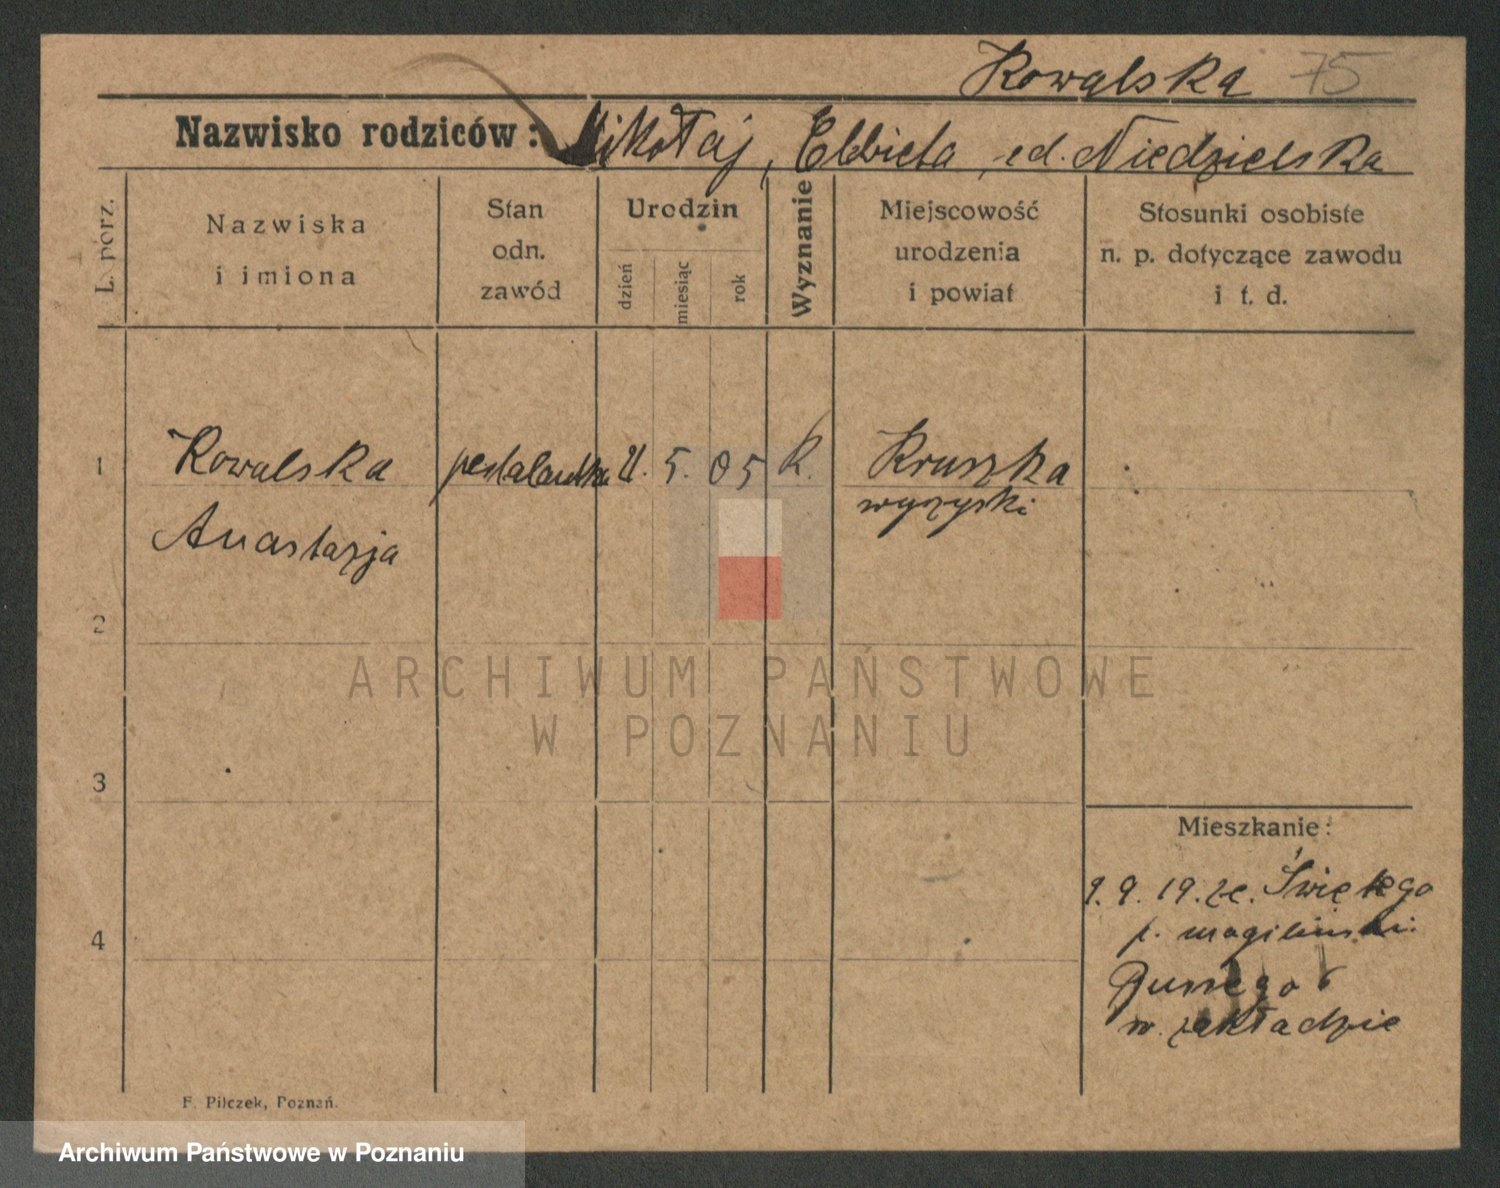 Kowalska 75
Nazwisko rodziców: Mikołaj, Elżbieta, zd. Niedzielska
L. porz.
Nazwiska
i imiona
Stan
odn.
zawód
Urodzin
dzień
miesiąc
rok
Wyznanie
Miejscowość
urodzenia
i powiat
Stosunki osobiste
n. p. dotyczące zawodu
i t. d.
1
Kowalska
Anastazja
5. 05
K.
Kruszka
wyrzyski
2
3
4
ARCHIWUM PAŃSTWOWE
W POZNANIU
Mieszkanie:
9. 9. 19. ze. Świętego
p.
w. zakładzie
F. Pilczek, Poznań.
Archiwum Państwowe w Poznaniu